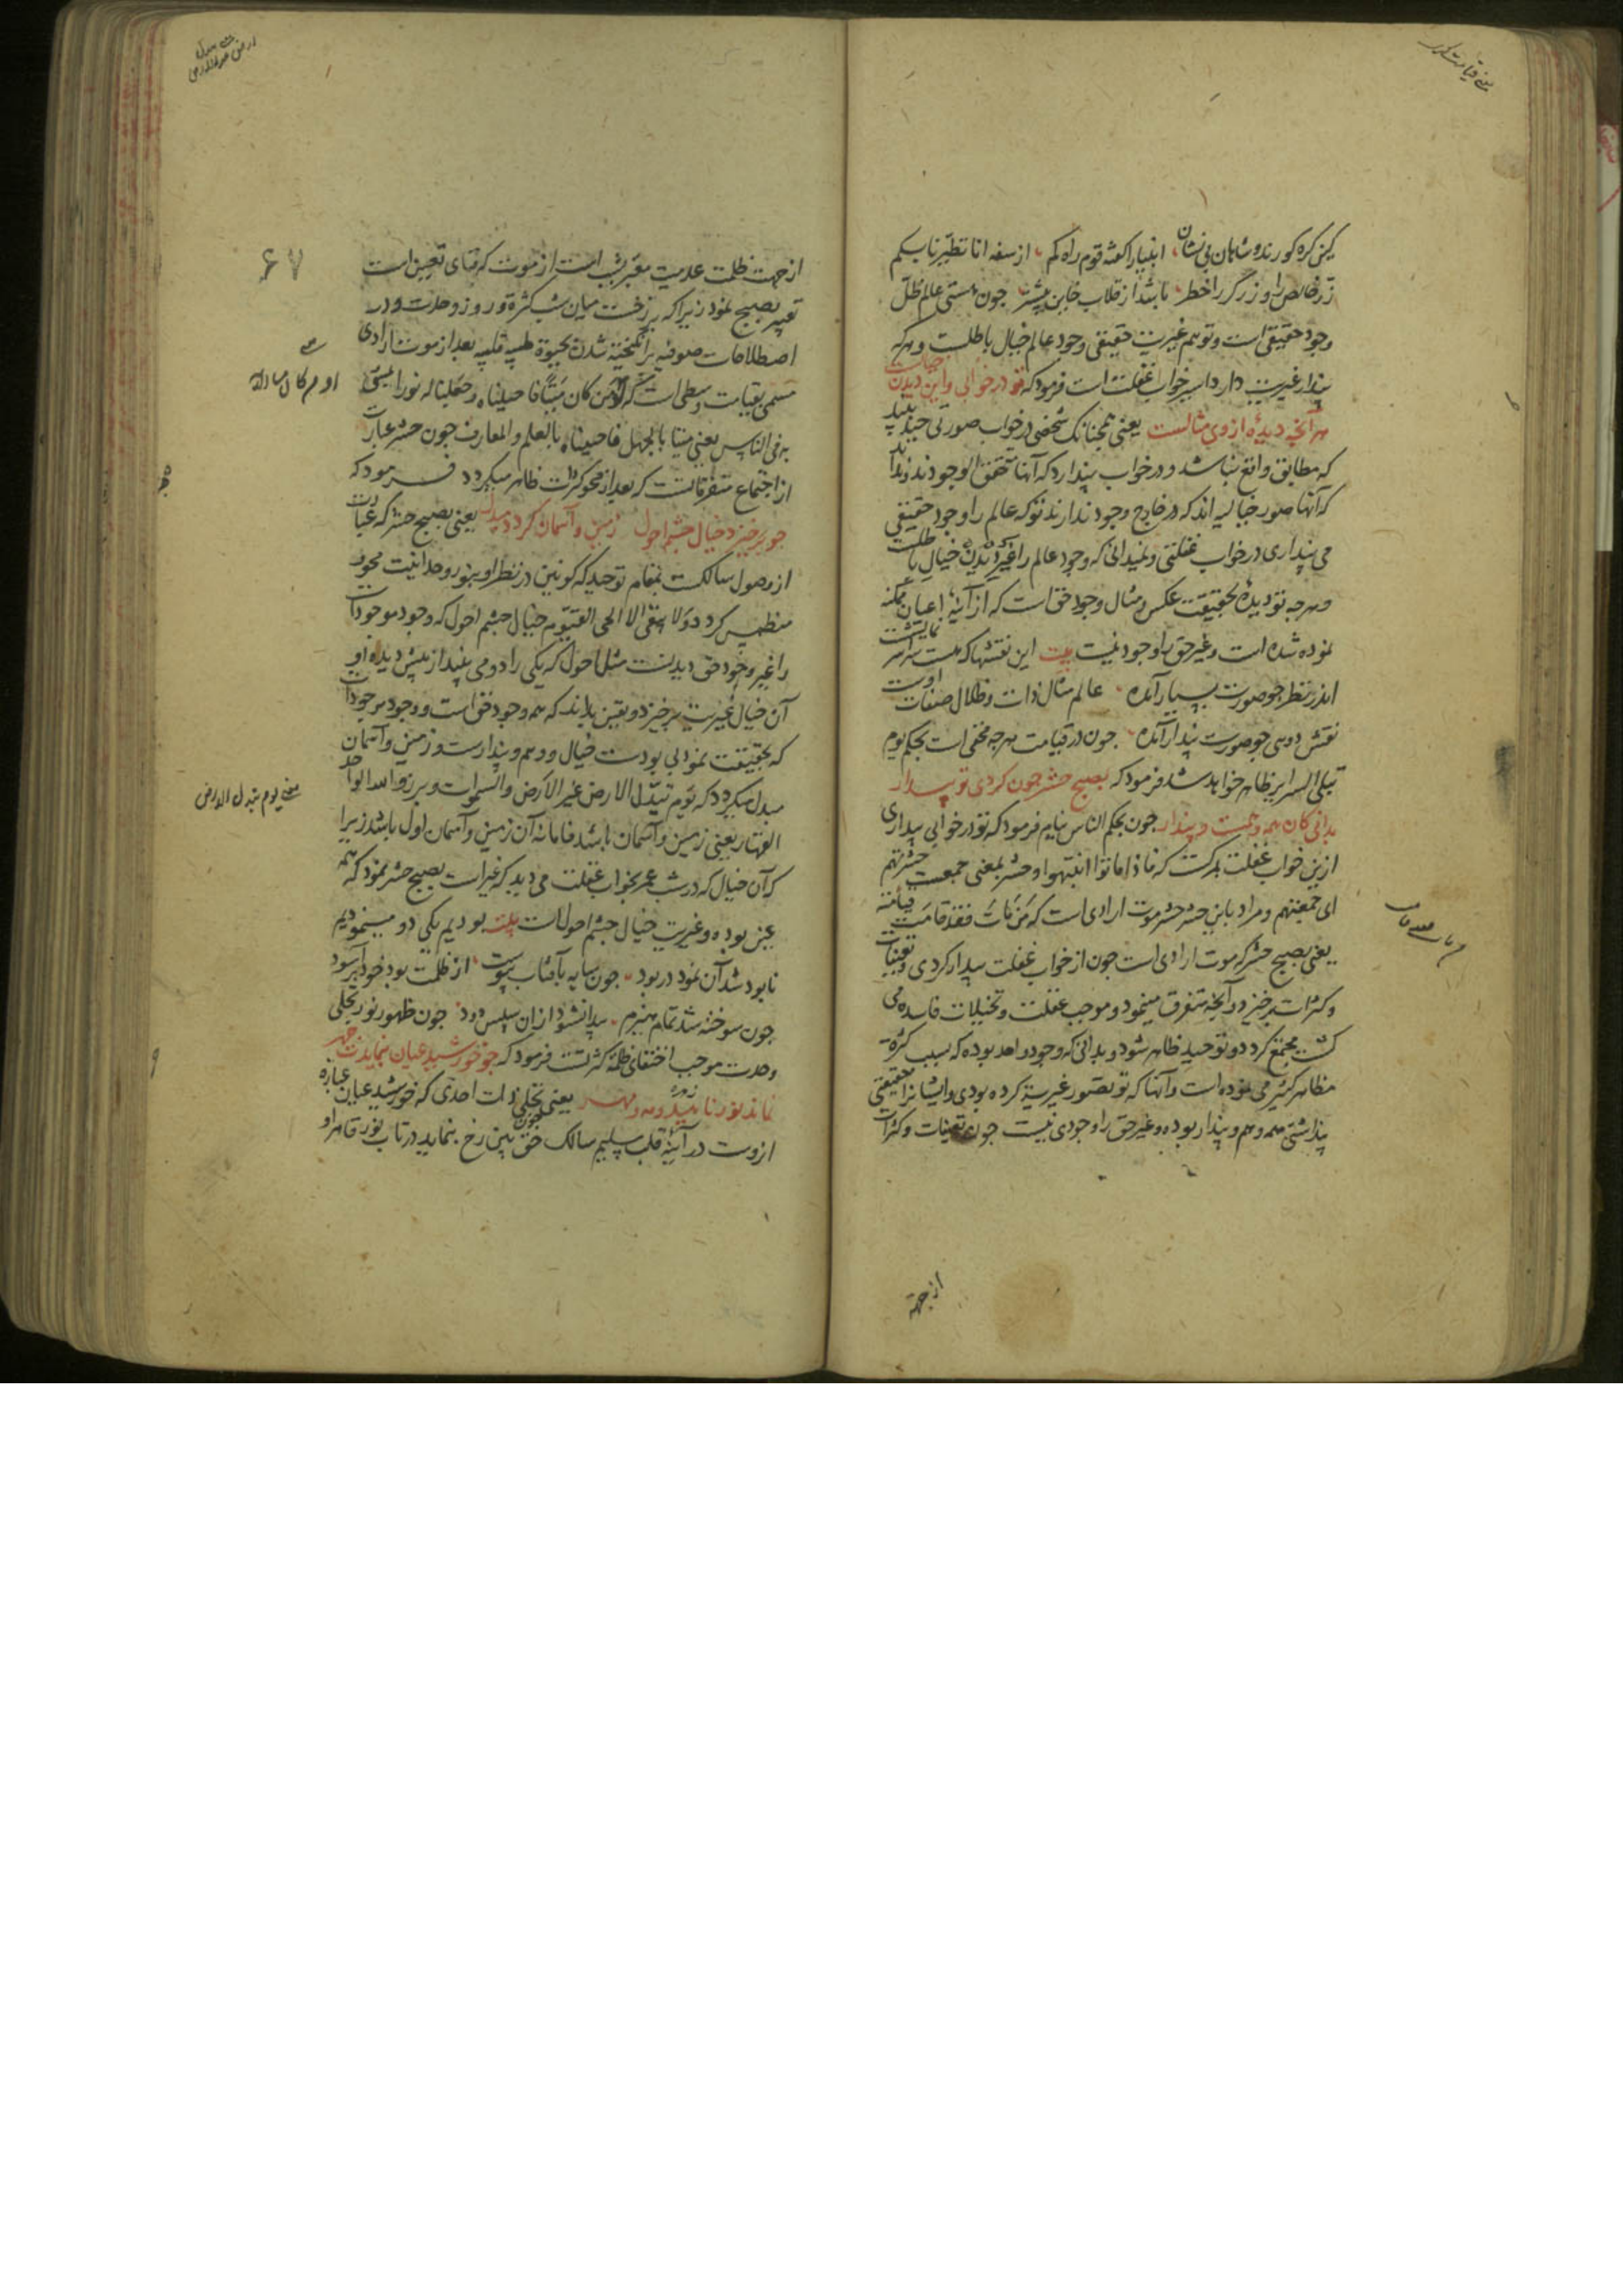 کین کره کورند و شاهان بی نشان انبیا را گفته قوم راه کم از سفه انا تطیرنا بکم
زر خالص را و زرگر را خطر باشد از قلاب خاین بیشتر جون هستی عالم ظل
وجود حقیقی است و توهم غیریت حقیقی وجود عالم خیال باطلست و هرکه
پندار غیریت دارد اسیر خواب غفلت است فرمود که تو در خوابی و این دیدن خیالست
هر آنچه دیدهٔ از وی مثالست یعنی همچنانک شخصی در خواب صورتی چند بیند
که مطابق واقع نباشد و در خواب پندارد که آنها متحقق الوجودند و نداند
که آنها صور خیالیه اند که در خارج وجود ندارند تو که عالم را وجود حقیقی
می پنداری در خواب غفلتی و نمیدانی که وجود عالم را غیر دیدن خیال باطلست
و هرجه تو دیدهٔ بحقیقت عکس و مثال وجود حق است که از آینهٔ اعیان ممکنه
نموده شده است و غیر حق را وجود نیست بیت این نقشها که هست سراسر نمایشست
اندر نظر جو صورت بسیار آمده عالم مثال ذات و ظلال صفات اوست
نقش دوی جو صورت پندار آمده جون در قیامت هرجه مخفی است بحکم یوم
تبلی السرایر ظاهر خواهد شد فرمود که بصبح حشر جون کردی تو بیدار
بدانی کان همه وهمست و پندار جون بحکم الناس نیام فرمود که تو در خوابی بیداری
ازین خواب غفلت بمرکست که فاذا ماتوا انتبهوا و حشر بمعنی جمعست حشرتهم
ای جمعتهم و مراد باین حشر حشر موت ارادی است که من مات فقد قامت قیامته
یعنی بصبح حشر که موت ارادی است جون از خواب غفلت بیدار کردی و تعینات
و کثرات برخیزد و آنچه متفرق مینمود و موجب غفلت و تخیلات فاسده می
کشت مجتمع کردد و توحید ظاهر شود و بدانی که وجود واحد بوده که بسبب کثرة
مظاهر کثیر می نموده است و آنها که تو بتصور غیریة کرده بودی و ایشانرا حقیقتی
پنداشتی همه وهم و پندار بوده و غیر حق را وجودی نیست جون تعینات و کثرات
از جهة
۶۷
از جهت ظلمت عدمیت معبر بشب است از موت که فنای تعین است
تعبیر بصبح نمود زیرا که برزخست میان شب کثرة و روز وحدت و در
اصطلاحات صوفیه برانگیخته شدن بحیوة طیبه قلبیه بعد از موت ارادی
مسمی بقیامت وسطی است که او من کان میتا فاحییناه و جعلنا له نورا یمشی
به فی الناس یعنی میتا بالجهل فاحییناه بالعلم و المعارف جون حشر عبارت
از اجتماع متفرقاتست که بعد از محو کثرات ظاهر میکردد فرمود که
جو برخیزد خیال چشم احول زمین و آسمان کردد مبدل یعنی بصبح حشر که عبارت
از وصول سالکست بمقام توحید که کونین در نظر او بنور وحدانیت محو و
منطمس کردد و لا یبقی الا الحی القیوم خیال چشم احول که وجود موجودات
را غیر وجود حق دیدنست مثل احول که یکی را دو می بیند از پیش دیده او
آن خیال غیریت برخیزد و یقین بداند که همه وجود حق است و وجود موجودات
که بحقیقت نمود بی بود است خیال و وهم و پندارست و زمین و آسمان
مبدل میکردد که یوم تبدل الارض غیر الارض و السموات و برزوا لله الواحد
القهار یعنی زمین و آسمان باشد فاما نه آن زمین و آسمان اول باشد زیرا
که آن خیال که در شب عمر بخواب غفلت می دید که غیر است بصبح حشر نمود که همه
عین بوده و غیریت خیال چشم احول است بیت بودیم یکی دو مینمودیم
نابود شد آن نمود در بود جون سایه بآفتاب پیوست از ظلمت بود خود برآسود
جون سوخته شد تمام هیزم پیدا نشود از ان سپس دود جون ظهور نور تجلی
وحدت موجب اختفای ظلمة کثرتست فرمود که جو خورشید عیان بنمایدت چهر
نماند نور ناهید و مه و مهر یعنی جون تجلی ذات احدی که خورشید عیان عبارة
ازوست در آینهٔ قلب سلیم سالک حق بین رخ بنماید در تاب نور قاهر او
زهره
معنی یوم تبدل الارض